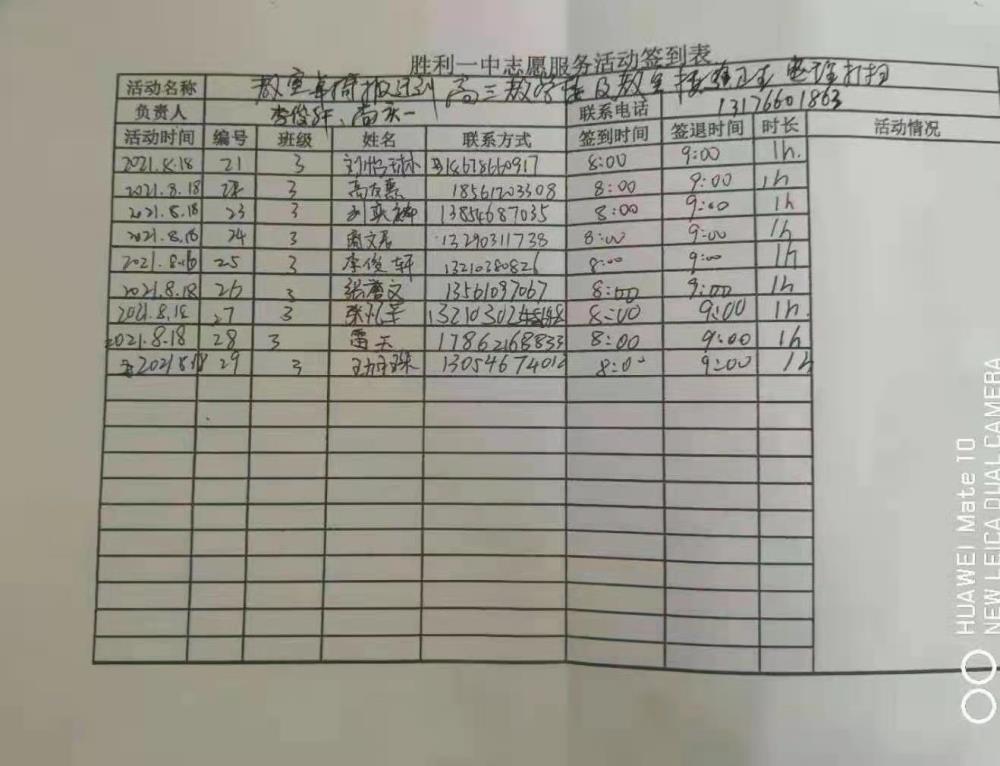 胜利一中志愿服务活动签到表
活动名称 教室桌椅搬运到高三教学楼及教室
负责人 李俊轩、 联系电话 13176601863
活动时间 编号 班级 姓名 联系方式 签到时间 签退时间 时长 活动情况
2021.8.18 21 3 8:00 9:00 1h.
2021.8.18 3 高友惠 18561203308 8:00 9:00 1h
2021.8.18 23 3 13854687035 8:00 9:00 1h
2021.8.18 24 3 周文君 13290311738 8:00 9:00 1h
25 3 李俊轩 13210380826 8:00 9:00 1h
2021.8.18 26 3 13561097067 8:00 9:00 1h
2021.8.18 27 3 8:00 9:00 1h.
2021.8.18 28 3 雷天 17862168833 8:00 9:00 1h
2021 8.18 29 3 9:00 1h
HUAWEI Mate 10
NEW LEICA DUAL CAMERA